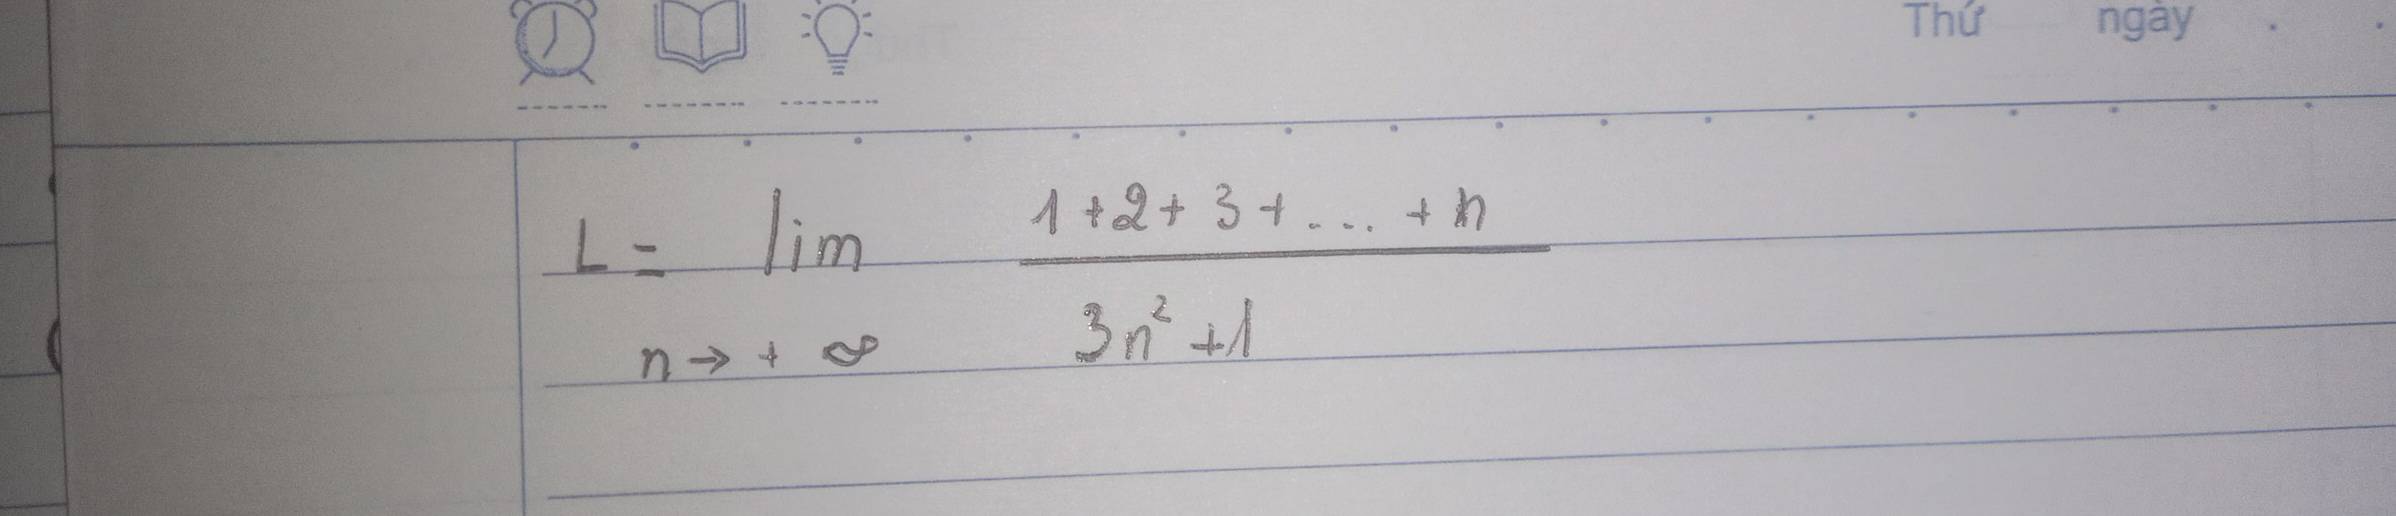 Thứ ngày . .
L = lim 1 + 2 + 3 + ... + n
n → + ∞ 3n² + 1